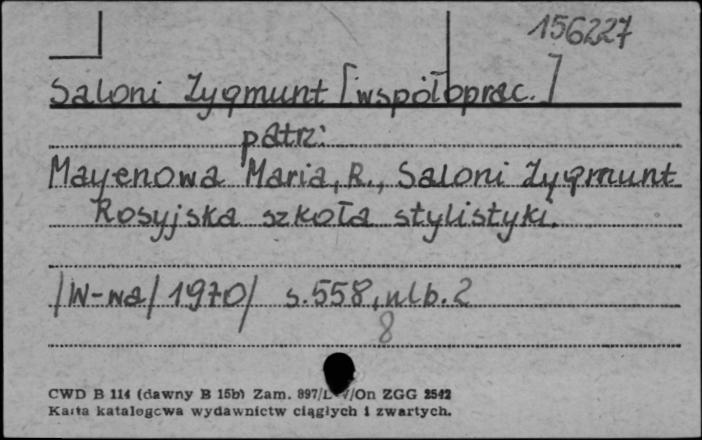 156227
Saloni Zygmunt [współoprac.]
patrz:
Mayenowa Maria, R., Saloni Zygmunt
Rosyjska szkoła stylistyki.
/W-wa/ 1970/ s. 558, nlb. 2
8
CWD B 114 (dawny B 15b) Zam. 897/ /On ZGG 2542
Karta katalogowa wydawnictw ciągłych i zwartych.